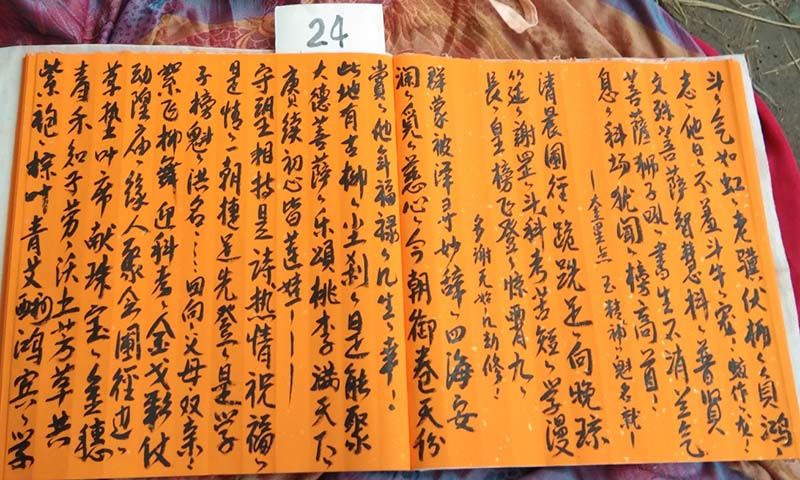 24
斗气如虹老骥伏枥负鸿
志他日不羞斗牛宫蛟作龙
文殊菩萨智慧科普贤
菩萨狮子吼书生不消兰气
息科场犹闻榜高首
奎墨点玉精神魁名就
清晨圃径跪跣足向晚琼
筵谢罡斗科考苦短学漫
长皇榜飞登惊霄九
多谢无始新修
群蒙被泽寻妙谛四海安
澜觅慈心今朝御卷天份
赏他年福禄几生幸
此地有古柳尘刹是能聚
大德菩萨乐颂桃李满天下
赓续初心皆莲娃
守望相持是诗热情祝福
是情一朝捷足先登是学
子榜魁洪名回向父母双亲
絮飞柳舞迎科考金戈彩仗
动隍庙缘人聚会圃径边
草垫叶席献珠宝金穗
青禾知子劳沃土芳草共
紫袍棕叶青艾酬鸿宾学